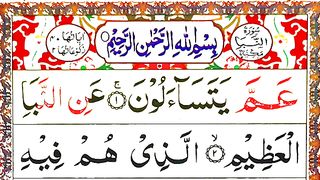 بِسْمِ اللهِ الرَّحْمٰنِ الرَّحِيْمِ
عَمَّ يَتَسَآءَلُوْنَ ۚ ۝۱ عَنِ النَّبَاِ
الْعَظِيْمِ ۝۲ الَّذِيْ هُمْ فِيْهِ